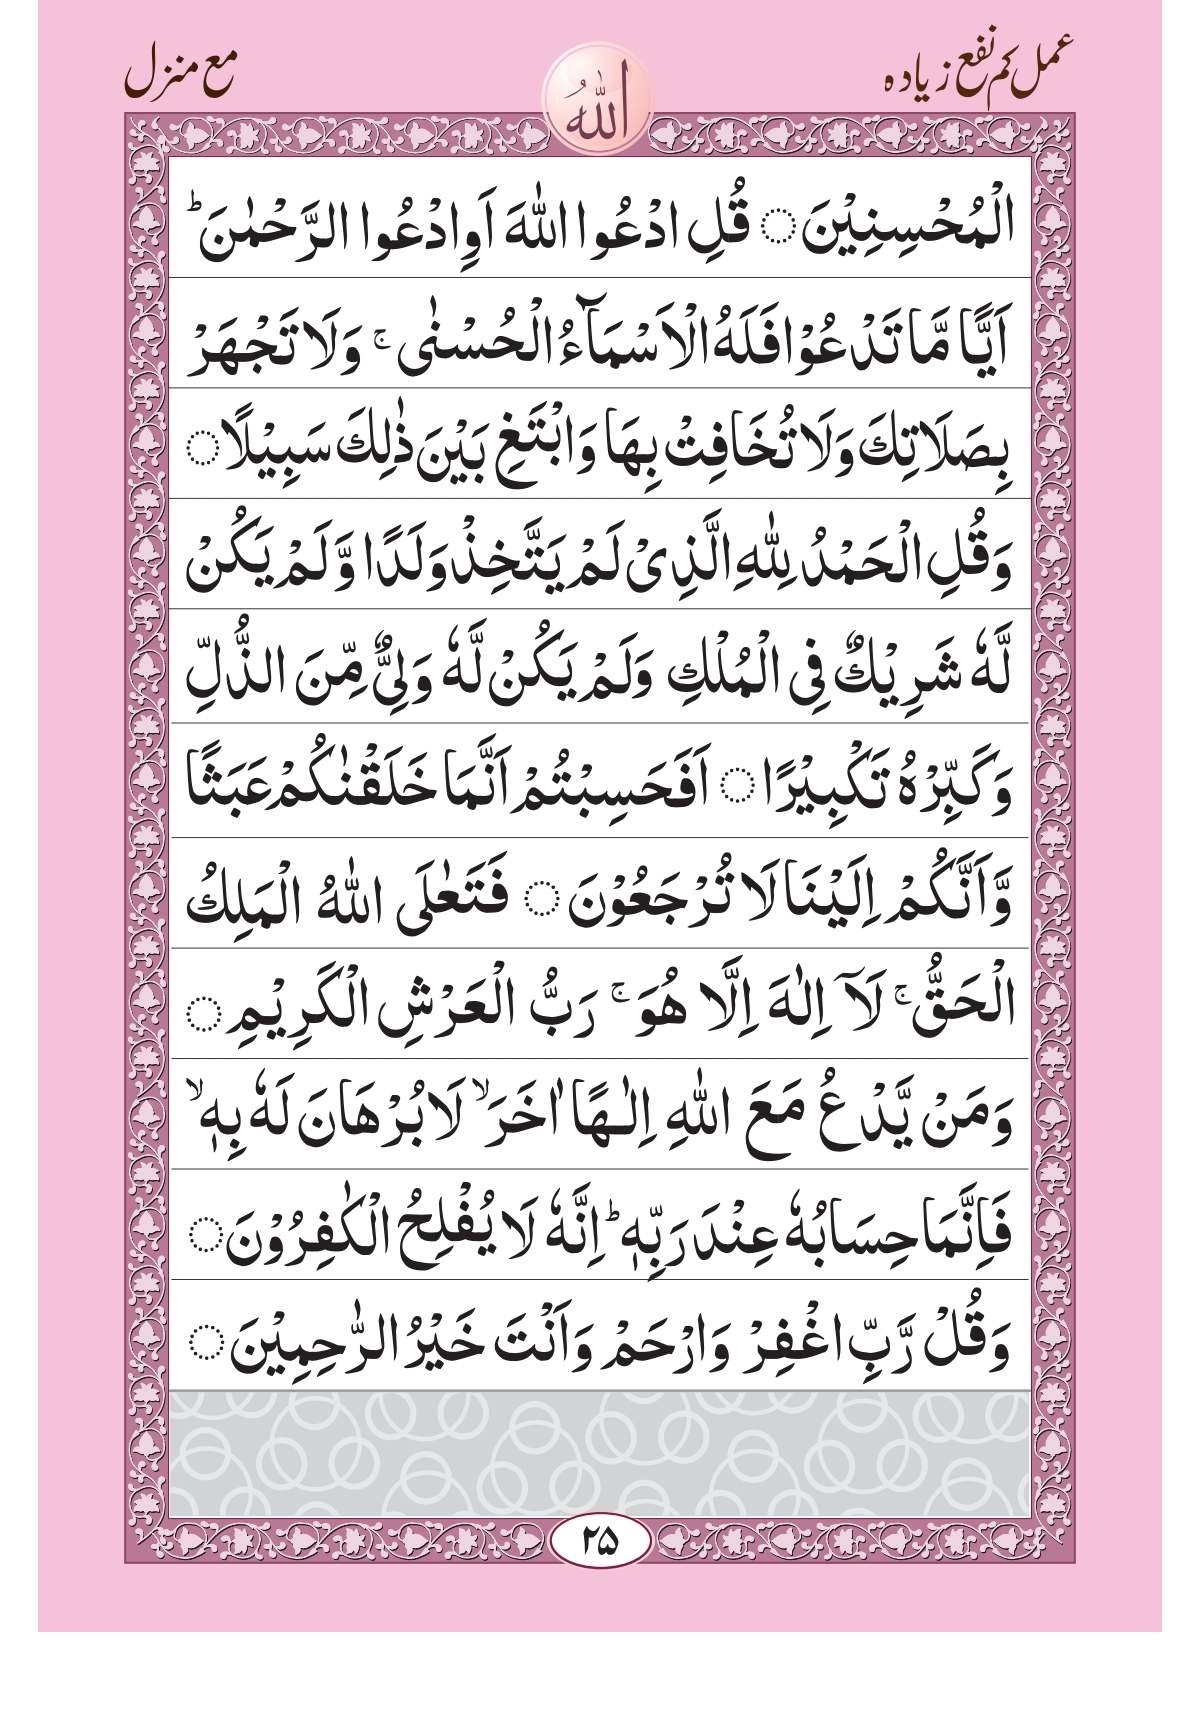 عمل کم نفع زیادہ
اللهُ
مع منزل
الْمُحْسِنِيْنَ ۝ قُلِ ادْعُوا اللّٰهَ اَوِادْعُوا الرَّحْمٰنَ ؕ
اَيًّا مَّا تَدْعُوْا فَلَهُ الْاَسْمَآءُ الْحُسْنٰى ۚ وَلَا تَجْهَرْ
بِصَلَاتِكَ وَلَا تُخَافِتْ بِهَا وَابْتَغِ بَيْنَ ذٰلِكَ سَبِيْلًا ۝
وَقُلِ الْحَمْدُ لِلّٰهِ الَّذِىْ لَمْ يَتَّخِذْ وَلَدًا وَّلَمْ يَكُنْ
لَّهٗ شَرِيْكٌ فِى الْمُلْكِ وَلَمْ يَكُنْ لَّهٗ وَلِىٌّ مِّنَ الذُّلِّ
وَكَبِّرْهُ تَكْبِيْرًا ۝ اَفَحَسِبْتُمْ اَنَّمَا خَلَقْنٰكُمْ عَبَثًا
وَّاَنَّكُمْ اِلَيْنَا لَا تُرْجَعُوْنَ ۝ فَتَعٰلَى اللّٰهُ الْمَلِكُ
الْحَقُّ ۚ لَآ اِلٰهَ اِلَّا هُوَ ۚ رَبُّ الْعَرْشِ الْكَرِيْمِ ۝
وَمَنْ يَّدْعُ مَعَ اللّٰهِ اِلٰـهًا اٰخَرَ ۙ لَا بُرْهَانَ لَهٗ بِهٖ ۙ
فَاِنَّمَا حِسَابُهٗ عِنْدَ رَبِّهٖ ؕ اِنَّهٗ لَا يُفْلِحُ الْكٰفِرُوْنَ ۝
وَقُلْ رَّبِّ اغْفِرْ وَارْحَمْ وَاَنْتَ خَيْرُ الرّٰحِمِيْنَ ۝
۲۵